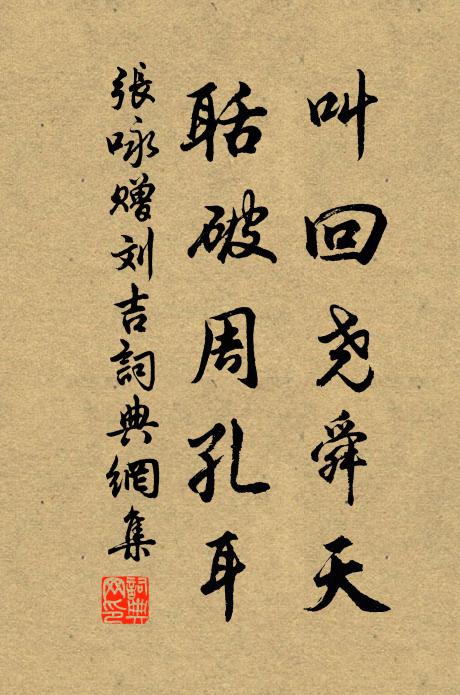 叫回尧舜天
聒破周孔耳
張咏赠刘吉詞典網集
詞典網印